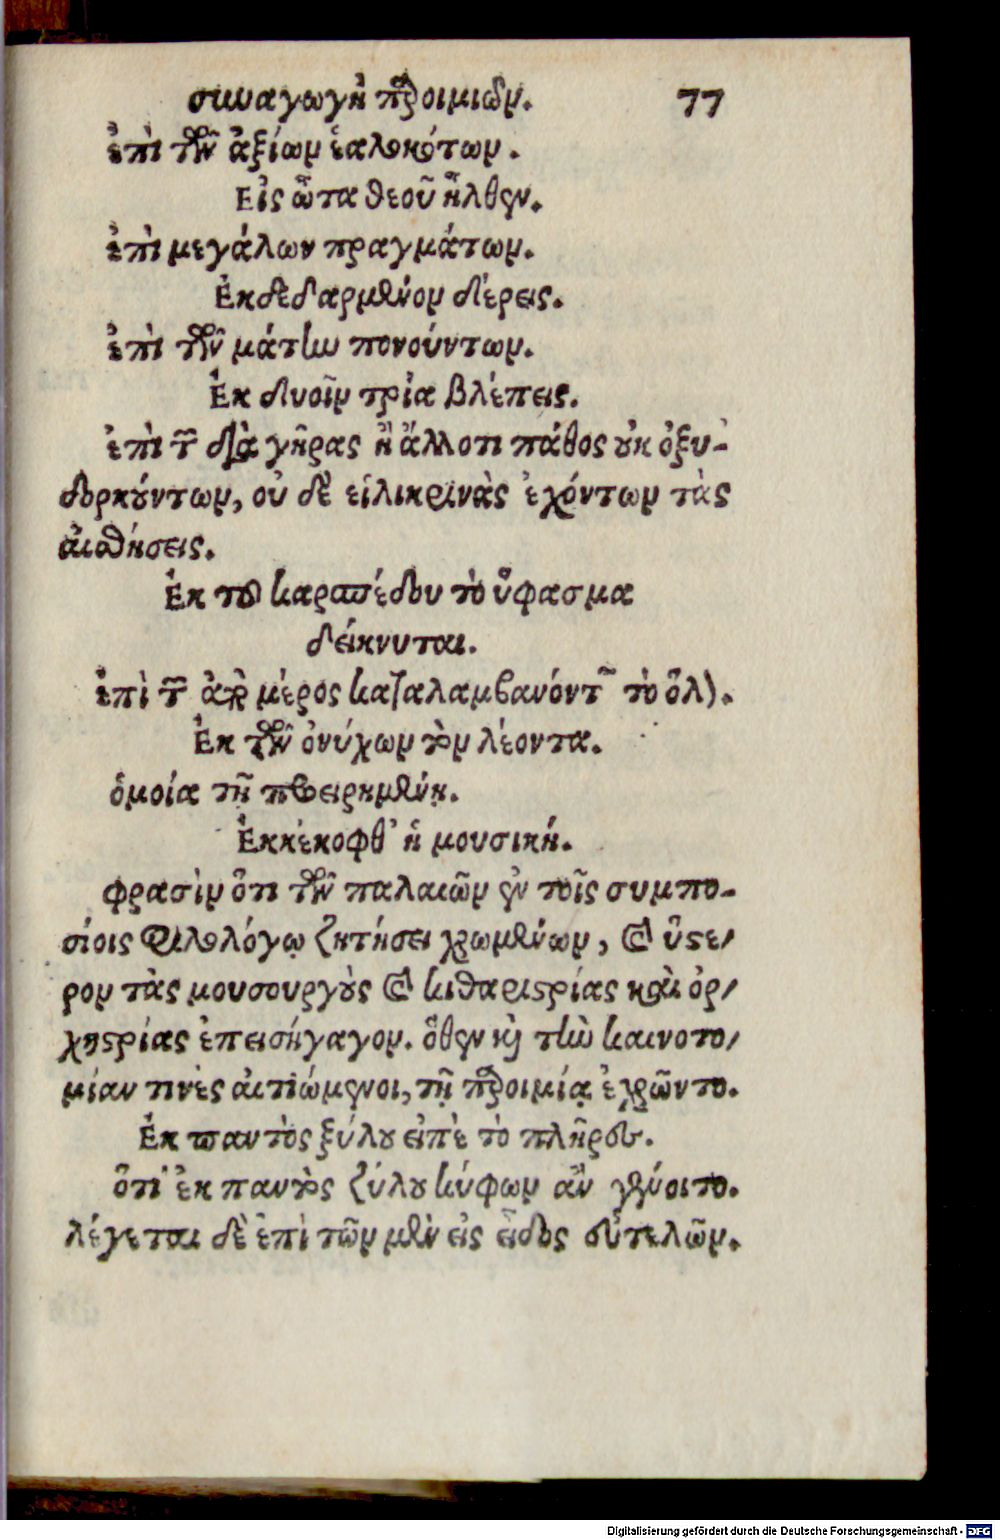 συναγωγὴ παροιμιῶν. 77
ἐπὶ τῶν ἀξίων ἑαλωκότων.
Εἰς ὦτα θεοῦ ἦλθεν.
ἐπὶ μεγάλων πραγμάτων.
Ἐκδεδαρμένον δέρεις.
ἐπὶ τῶν μάτην πονούντων.
Ἐκ δυοῖν τρία βλέπεις.
ἐπὶ τῶν διὰ γῆρας ἢ ἄλλοτι πάθος οὐκ ὀξυ-
δορκούντων, οὐ δὲ εἱλικρινὰς ἐχόντων τὰς
αἰσθήσεις.
Ἐκ τοῦ κρασπέδου τὸ ὕφασμα
δείκνυται.
ἐπὶ τῶν ἀπὸ μέρος καταλαμβανόντων τὸ ὅλον.
Ἐκ τῶν ὀνύχων τὸν λέοντα.
ὁμοία τῇ προειρημένῃ.
Ἐκκέκοφθ' ἡ μουσική.
φρασὶν ὅτι τῶν παλαιῶν ἐν τοῖς συμπο-
σίοις φιλολόγῳ ζητήσει χρωμένων, οἱ ὕστε/
ρον τὰς μουσουργοὺς καὶ κιθαριστρίας καὶ ὀρ/
χηστρίας ἐπεισήγαγον. ὅθεν καὶ τὴν καινοτο/
μίαν τινὲς αἰτιώμενοι, τῇ παροιμίᾳ ἐχρῶντο.
Ἐκ παντὸς ξύλου εἰπὲ τὸ πλῆρες.
ὅτι ἐκ παντὸς ξύλου κύφων ἂν γένοιτο.
λέγεται δὲ ἐπὶ τῶν μὲν εἰς εἶδος εὐτελῶν.